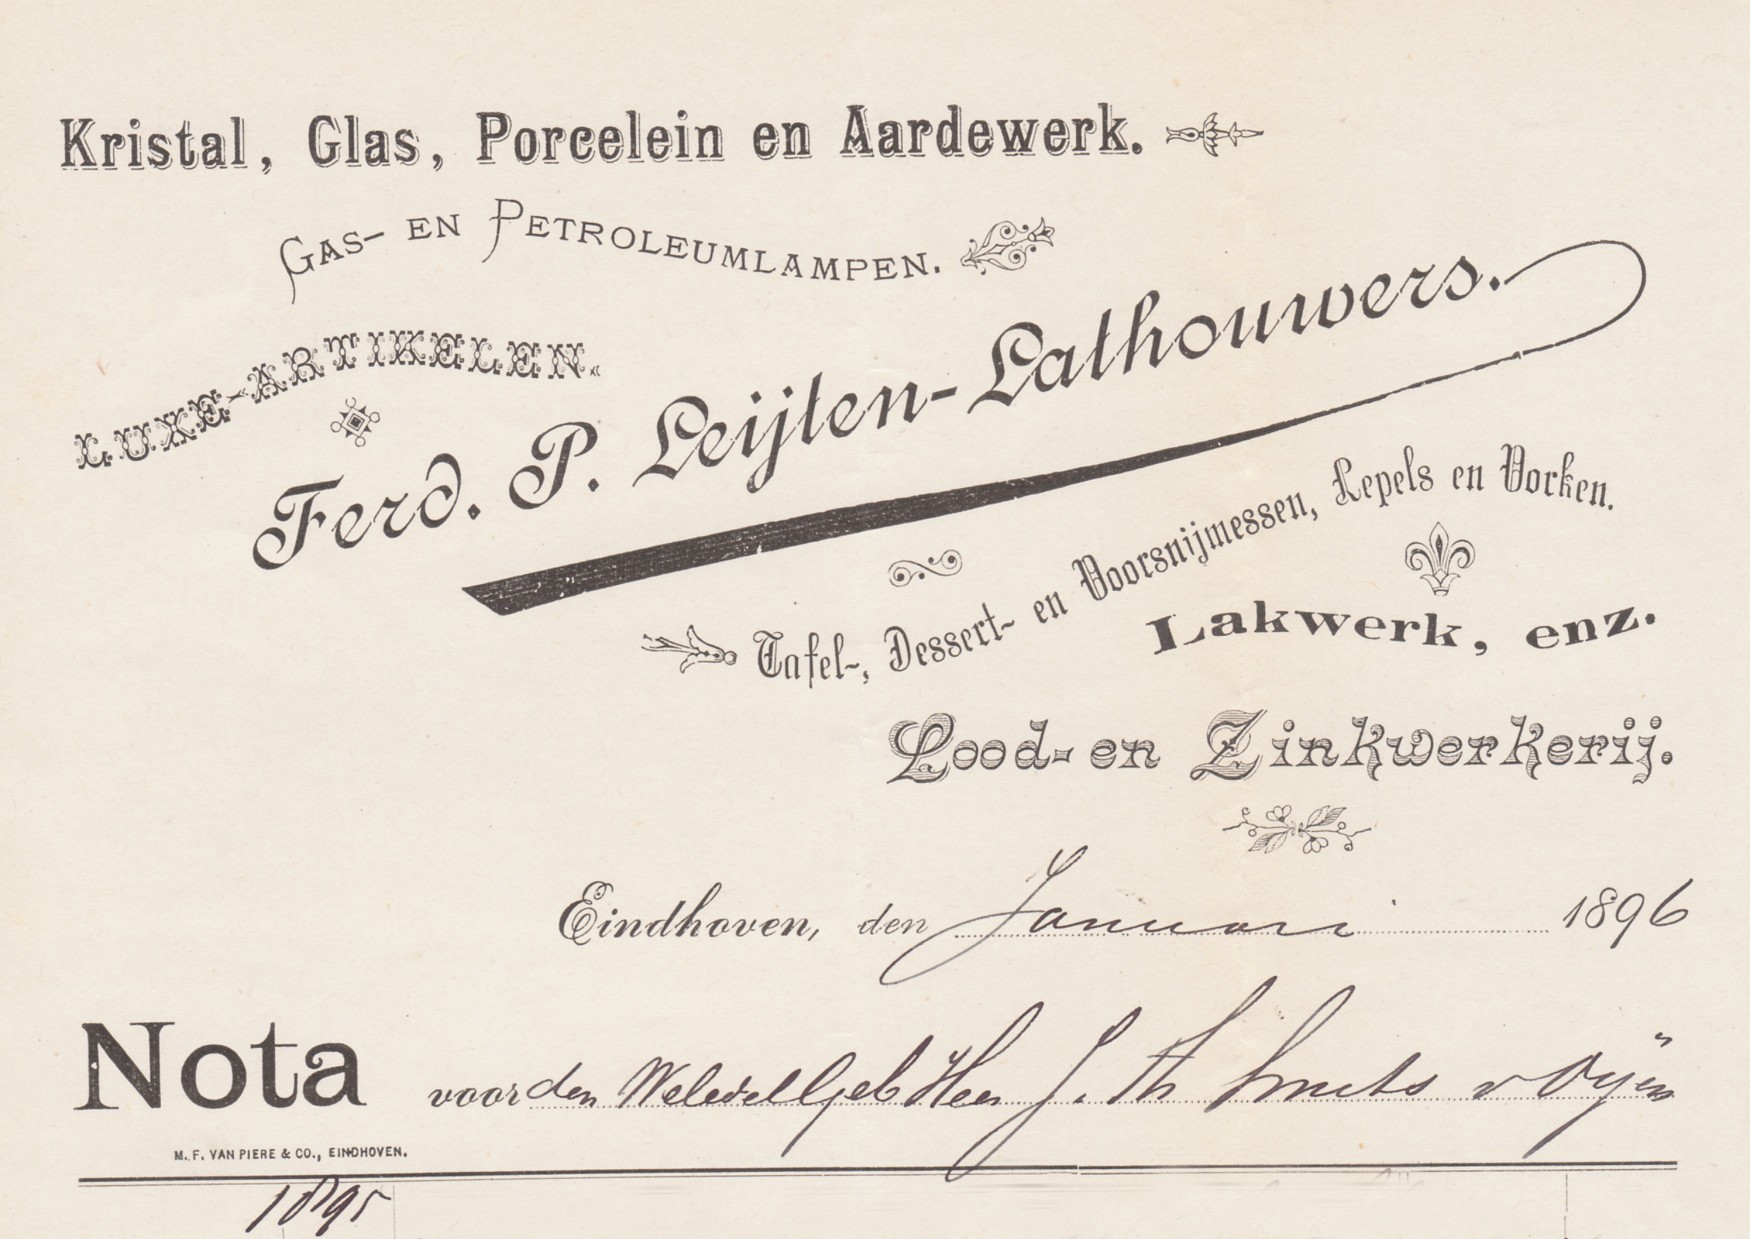 Kristal, Glas, Porcelein en Aardewerk.
Gas- en Petroleumlampen.
Luxe-Artikelen.
Ferd. P. Leijten-Lathouwers.
Tafel-, Dessert- en Voorsnijmessen, Lepels en Vorken.
Lakwerk, enz.
Lood- en Zinkwerkerij.
Eindhoven, den Januari 1896
Nota voor den WeledelGeb Heer J. Th Smits v Oÿen
M. F. VAN PIERE & CO., EINDHOVEN.
1895